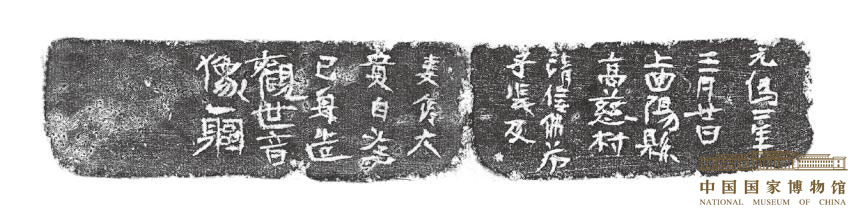 元象二年
三月廿日
上曲陽縣
高慈村
清信佛弟
子張攴
妻
大
黃白
己身造
觀世音
像一軀
中国国家博物馆
NATIONAL MUSEUM OF CHINA